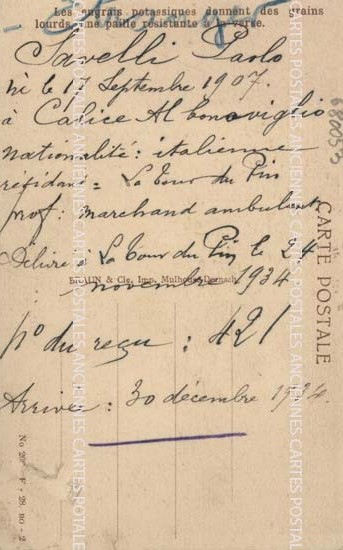 Les engrais potassiques donnent des grains
lourds, une paille résistante à la verse.
Savelli Paolo
né le 17 Septembre 1907.
à Calice Al Cornoviglio
nationalité: italienne
résidant = La Tour du Pin
prof: marchand ambulant
Délivré à La Tour du Pin le 24
BRAUN & Cie, Imp. Mulhouse-Dornach
novembre 1934
no du reçu : 421
Arrivée : 30 décembre 1934.
CARTE POSTALE
680053
CARTES POSTALES ANCIENNES